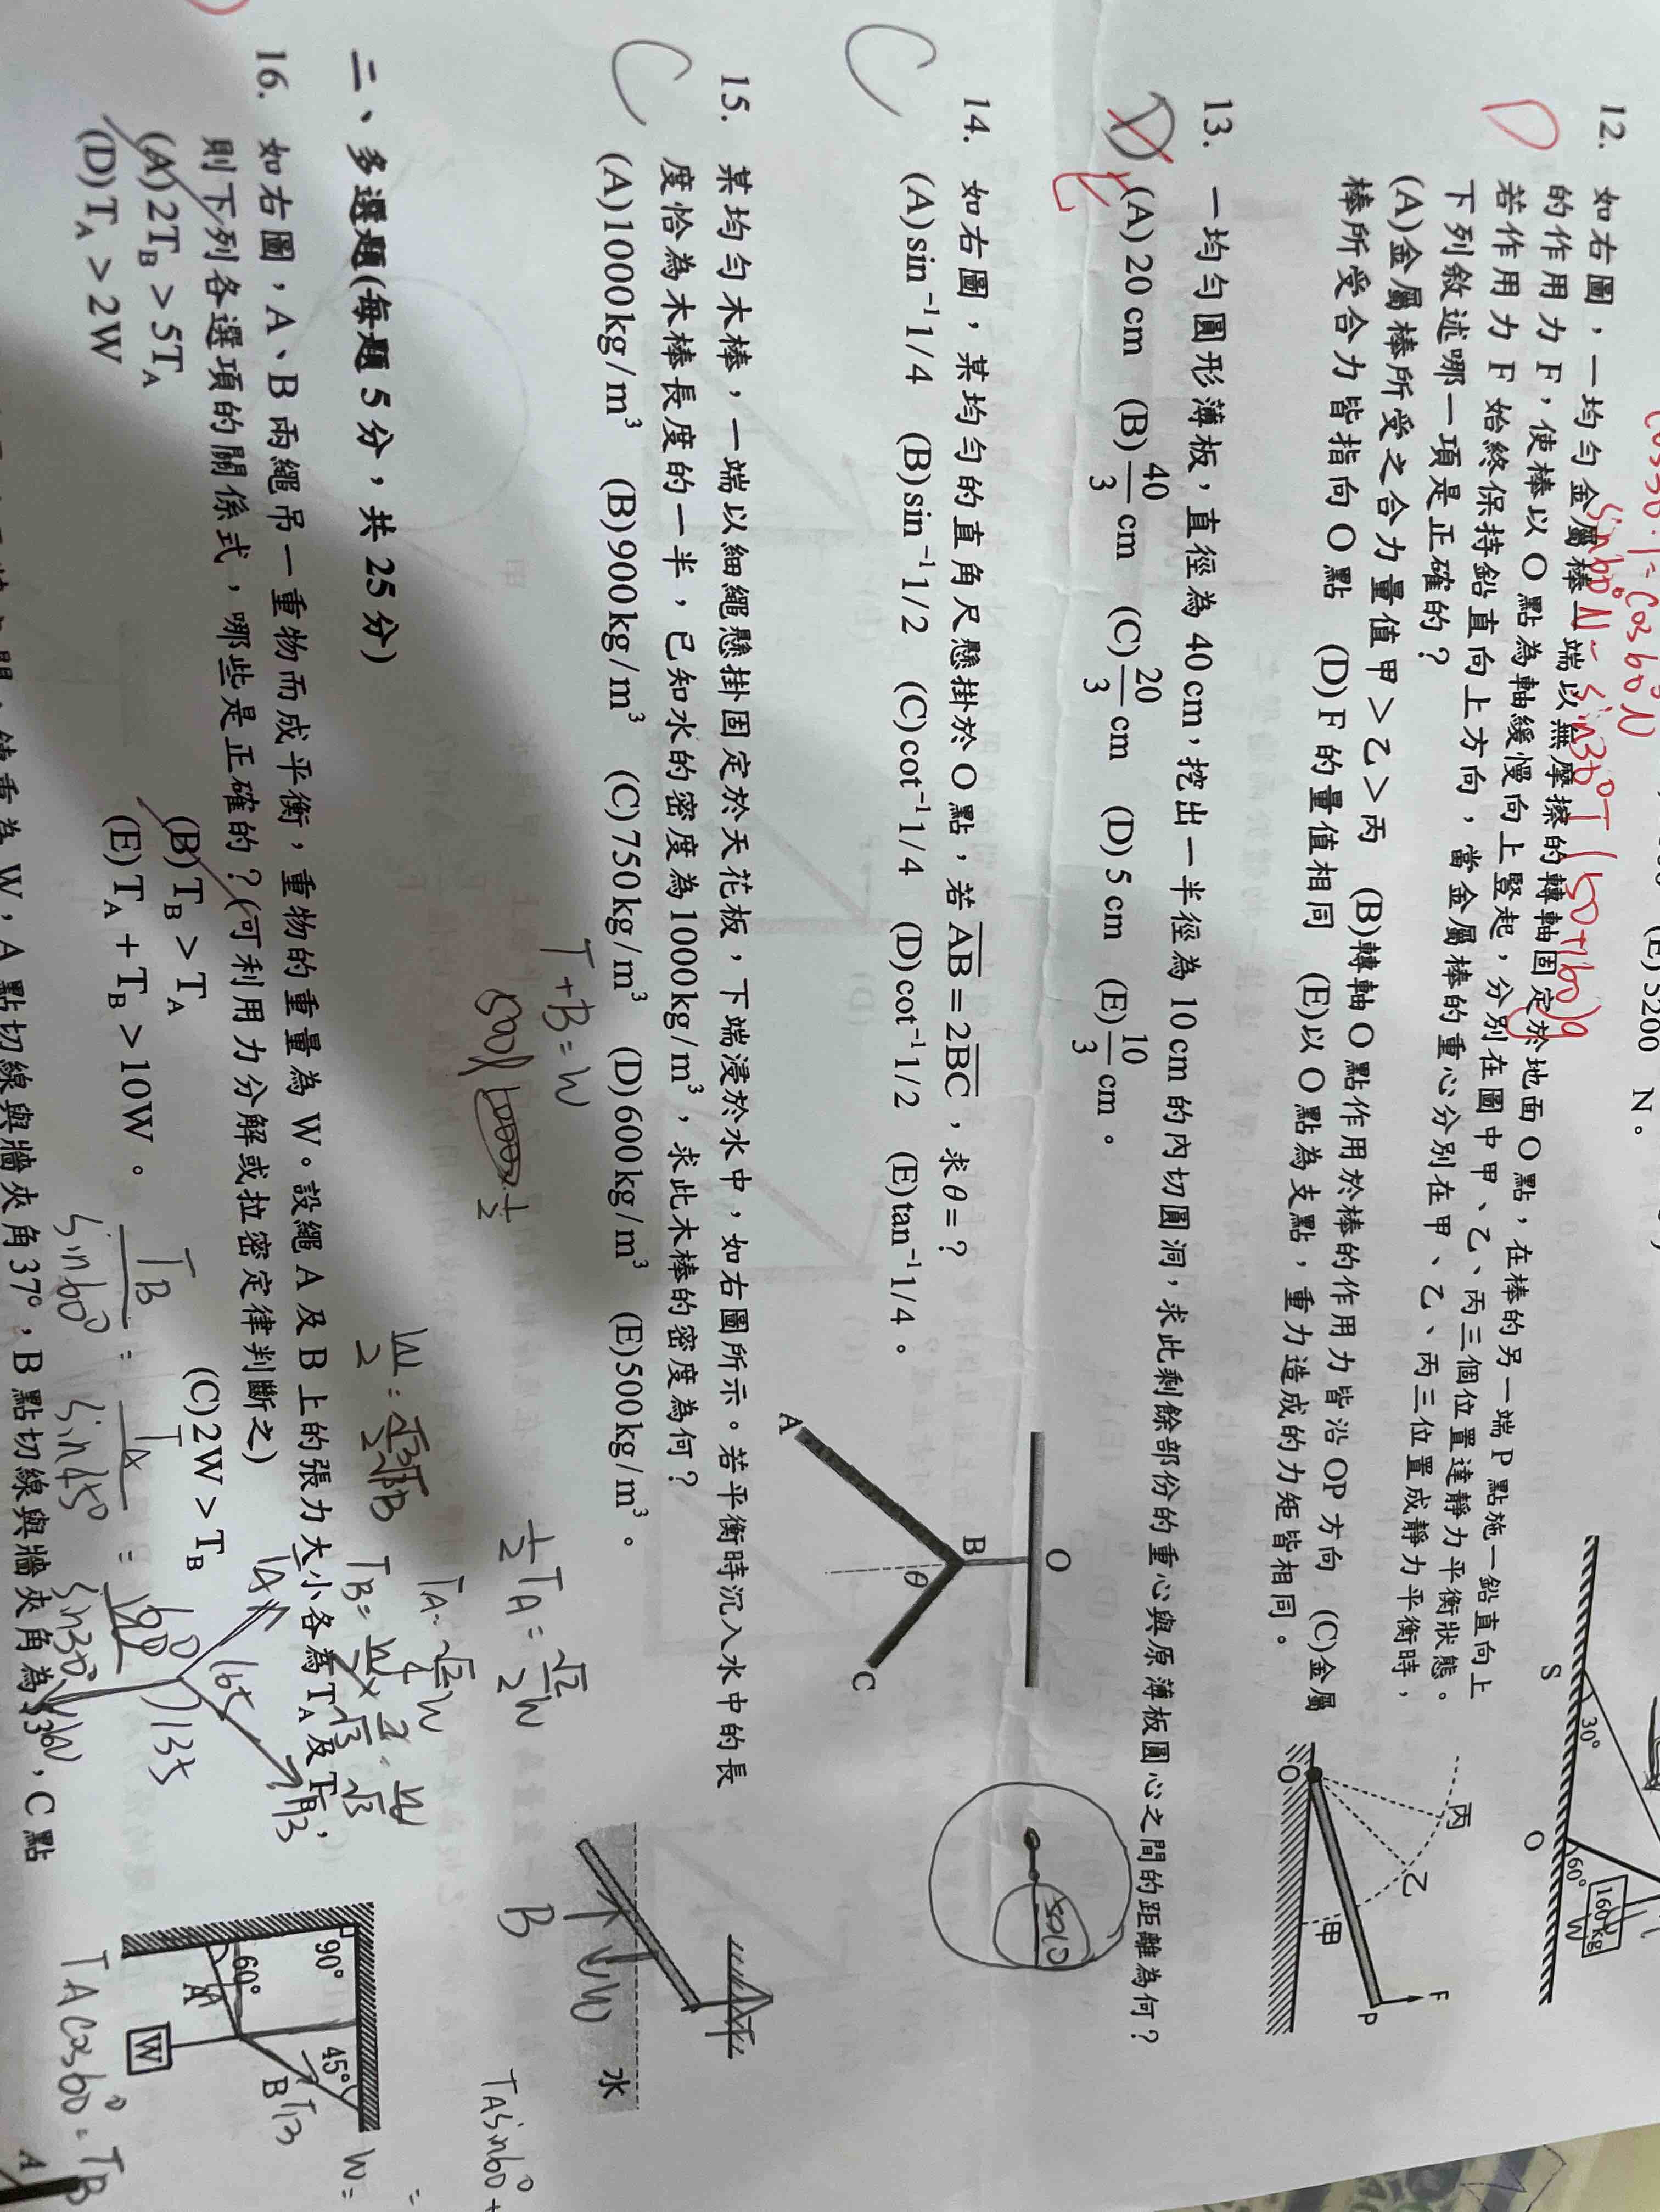 (E)3200 N。
12. 如右圖，一均勻金屬棒一端以無摩擦的轉軸固定於地面O點，在棒的另一端P點施一鉛直向上
的作用力F，使棒以O點為軸緩慢向上豎起，分別在圖中甲、乙、丙三個位置達靜力平衡狀態。
若作用力F始終保持鉛直向上方向，當金屬棒的重心分別在甲、乙、丙三位置成靜力平衡時，
下列敘述哪一項是正確的？
(A)金屬棒所受之合力量值甲＞乙＞丙 (B)轉軸O點作用於棒的作用力皆沿OP方向 (C)金屬
棒所受合力皆指向O點 (D)F的量值相同 (E)以O點為支點，重力造成的力矩皆相同。
S
30°
O
60°
160kg
W
丙
乙
甲
F
P
O
D
13. 一均勻圓形薄板，直徑為40cm，挖出一半徑為10cm的內切圓洞，求此剩餘部份的重心與原薄板圓心之間的距離為何？
(A)20cm (B)40/3 cm (C)20/3 cm (D)5cm (E)10/3 cm。
14. 如右圖，某均勻的直角尺懸掛於O點，若AB=2BC，求θ=？
(A)sin⁻¹1/4 (B)sin⁻¹1/2 (C)cot⁻¹1/4 (D)cot⁻¹1/2 (E)tan⁻¹1/4。
O
B
θ
A
C
C
15. 某均勻木棒，一端以細繩懸掛固定於天花板，下端浸於水中，如右圖所示。若平衡時沉入水中的長
度恰為木棒長度的一半，已知水的密度為1000kg/m³，求此木棒的密度為何？
(A)1000kg/m³ (B)900kg/m³ (C)750kg/m³ (D)600kg/m³ (E)500kg/m³。
水
C
T+B=W
B
½TA=√2/2 W
二、多選題(每題5分，共25分)
16. 如右圖，A、B兩繩吊一重物而成平衡，重物的重量為W。設繩A及B上的張力大小各為TA及TB，
則下列各選項的關係式，哪些是正確的？(可利用力分解或拉密定律判斷之)
(A)2TB＞5TA (B)TB＞TA (C)2W＞TB
(D)TA＞2W (E)TA+TB＞10W。
90°
60°
45°
A
B
W
TB/sin60° = TA/sin45° =
165
135
TAcos60°=TB